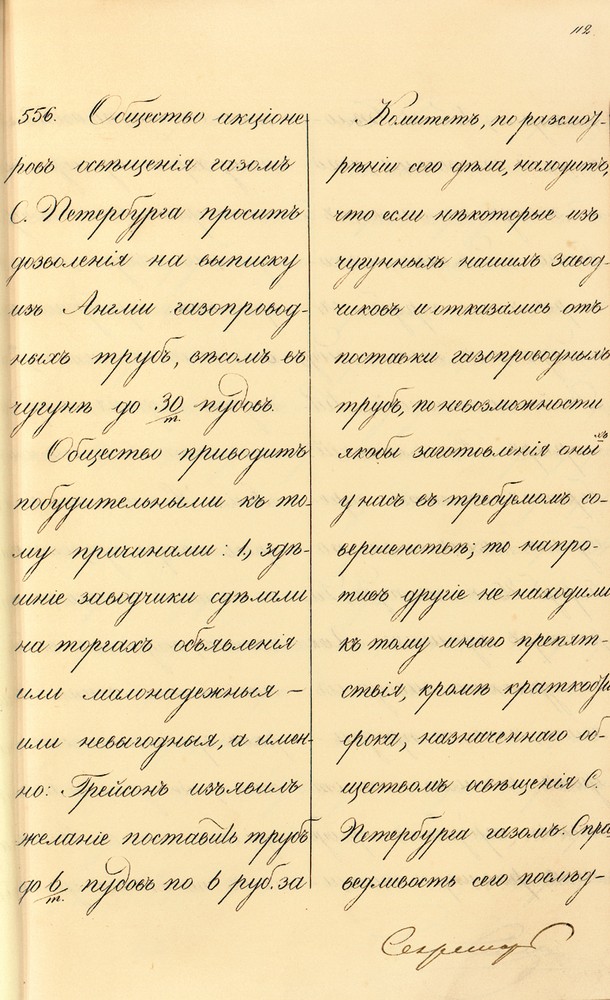 112
556. Общество акціоне
ровъ освѣщенія газомъ
С. Петербурга проситъ
дозволенія на выписку
изъ Англіи газопровод-
ныхъ трубъ, вѣсомъ въ
чугунѣ до 30/т. пудовъ.
Общество приводитъ
побудительными къ то-
му причинами: 1, здѣ-
шніе заводчики сдѣлали
на торгахъ объявленія
или малонадежныя –
или невыгодныя, а имен-
но: Грейсонъ изъявилъ
желаніе поставить трубъ
до 6/т. пудовъ по 6 руб. за
Комитетъ, по разсмот-
рѣніи сего дѣла, находитъ,
что если нѣкоторые изъ
чугунныхъ нашихъ завод-
чиковъ и отказались отъ
поставки газопроводныхъ
трубъ, по невозможности
якобы заготовленія оныхъ
у насъ въ требуемомъ со-
вершенствѣ; то напро-
тивъ другіе не находили
къ тому инаго препят-
ствія, кромѣ краткости
срока, назначеннаго об-
ществомъ освѣщенія С.
Петербурга газомъ. Спра
ведливость сего послѣд-
Секретарь